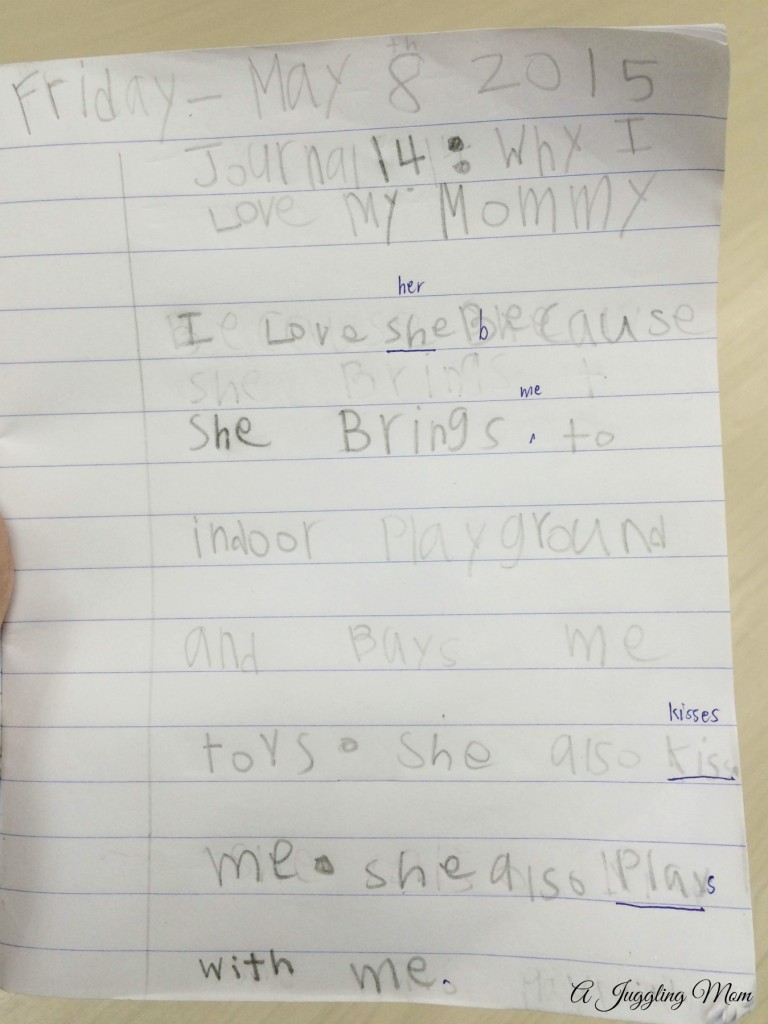 Friday - May 8th 2015
Journal 14: Why I
Love My Mommy
her
I Love she because
she Brings t
me
She Brings ‸ to
indoor Playground
and Bays me
kisses
toys. She also kiss
me. she also Plays
with me.
A Juggling Mom